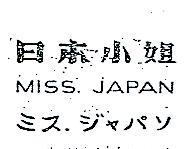 日本小姐
MISS. JAPAN
ミス.ジャパソ